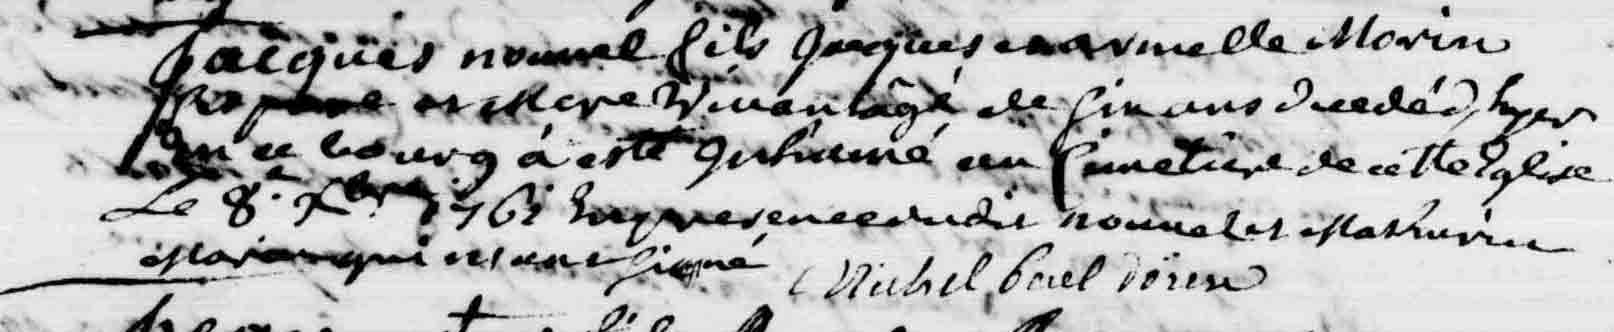 Jacques nouvel fils Jacques et armelle Morin
ses pere et Mere Vivant âgé de six ans decedé hyer
en ce bourg à esté Inhumé au Simetiere de cette Eglise
Le 8e Xbre 1761 En presence dudit nouvel et Mathurin
Morin qui n'ont signé Michel